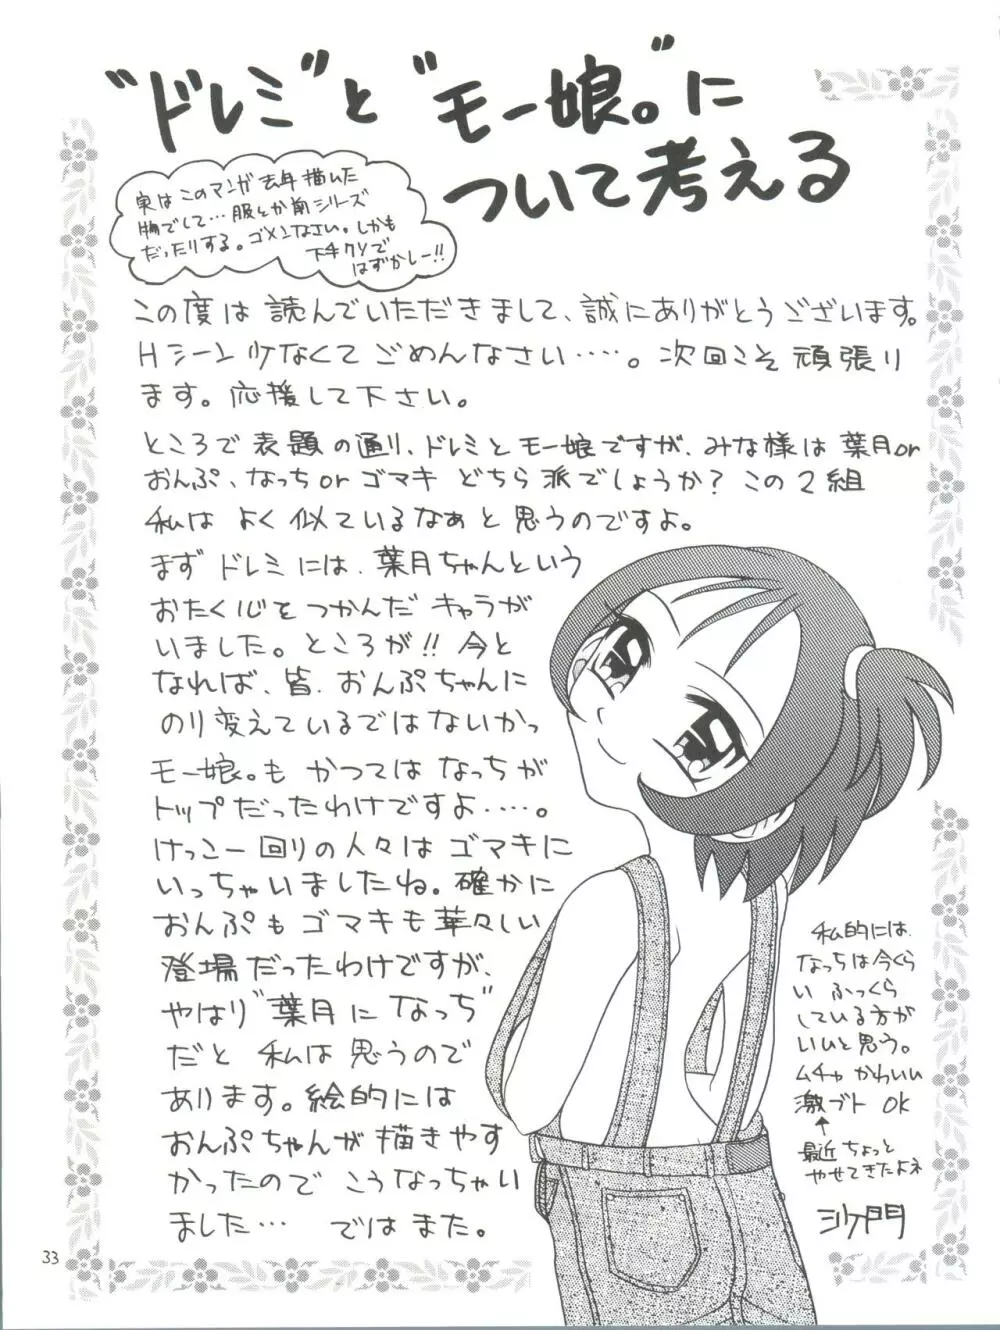 “ドレミ”と“モー娘。”に
ついて考える
実はこのマンガ去年描いた
物でして…服とか前シリーズ
だったりする。ゴメンなさい。しかも
下手クソで
はずかしー!!
この度は読んでいただきまして、誠にありがとうございます。
Hシーン少なくてごめんなさい……。次回こそ頑張り
ます。応援して下さい。
ところで表題の通り、ドレミとモー娘ですが、みな様は葉月or
おんぷ、なっちorゴマキ どちら派でしょうか?この2組
私はよく似ているなぁと思うのですよ。
まずドレミには、葉月ちゃんという
おたく心をつかんだキャラが
いました。ところが!!今と
なれば、皆、おんぷちゃんに
のり変えているではないかっ
モー娘。もかつてはなっちが
トップだったわけですよ……。
けっこー回りの人々はゴマキに
いっちゃいましたね。確かに
おんぷもゴマキも華々しい
登場だったわけですが、
やはり“葉月になっち”
だと私は思うので
あります。絵的には
おんぷちゃんが描きやす
かったのでこうなっちゃい
ました… ではまた。
私的には、
なっちは今くら
いふっくら
している方が
いいと思う。
ムチャかわいい
激ブトOK
↑
最近ちょっと
やせてきたよネ
沙門
33